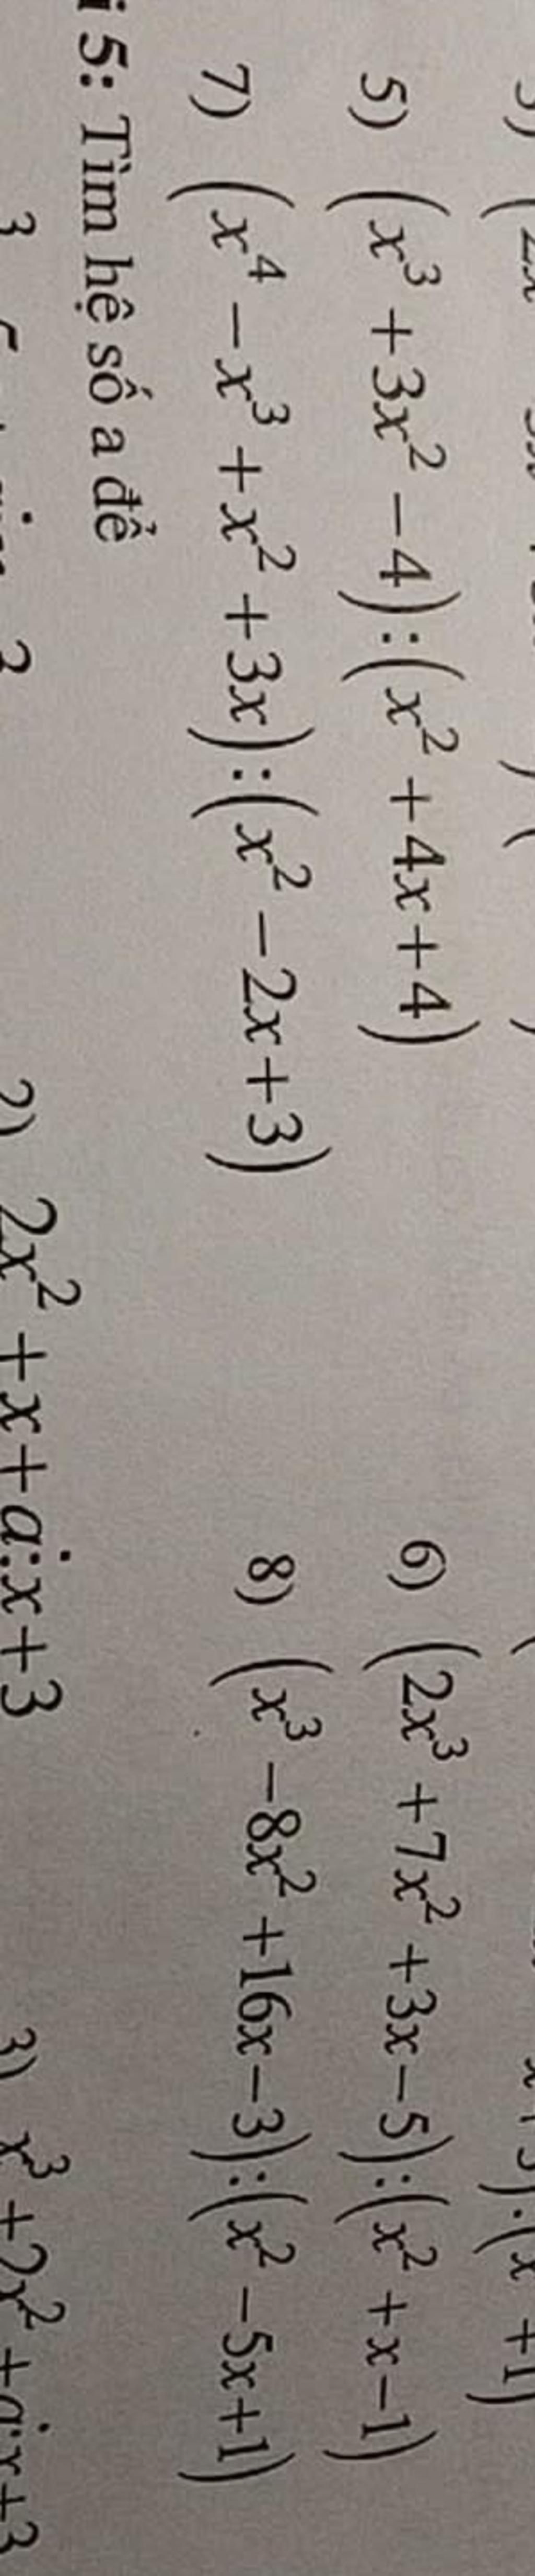 5) (x³ + 3x² − 4) : (x² + 4x + 4) 6) (2x³ + 7x² + 3x − 5) : (x² + x − 1)
7) (x⁴ − x³ + x² + 3x) : (x² − 2x + 3) 8) (x³ − 8x² + 16x − 3) : (x² − 5x + 1)
5: Tìm hệ số a để
2) 2x² + x + a ⋮ x + 3 3) x³ + 2x² + a ⋮ x + 3